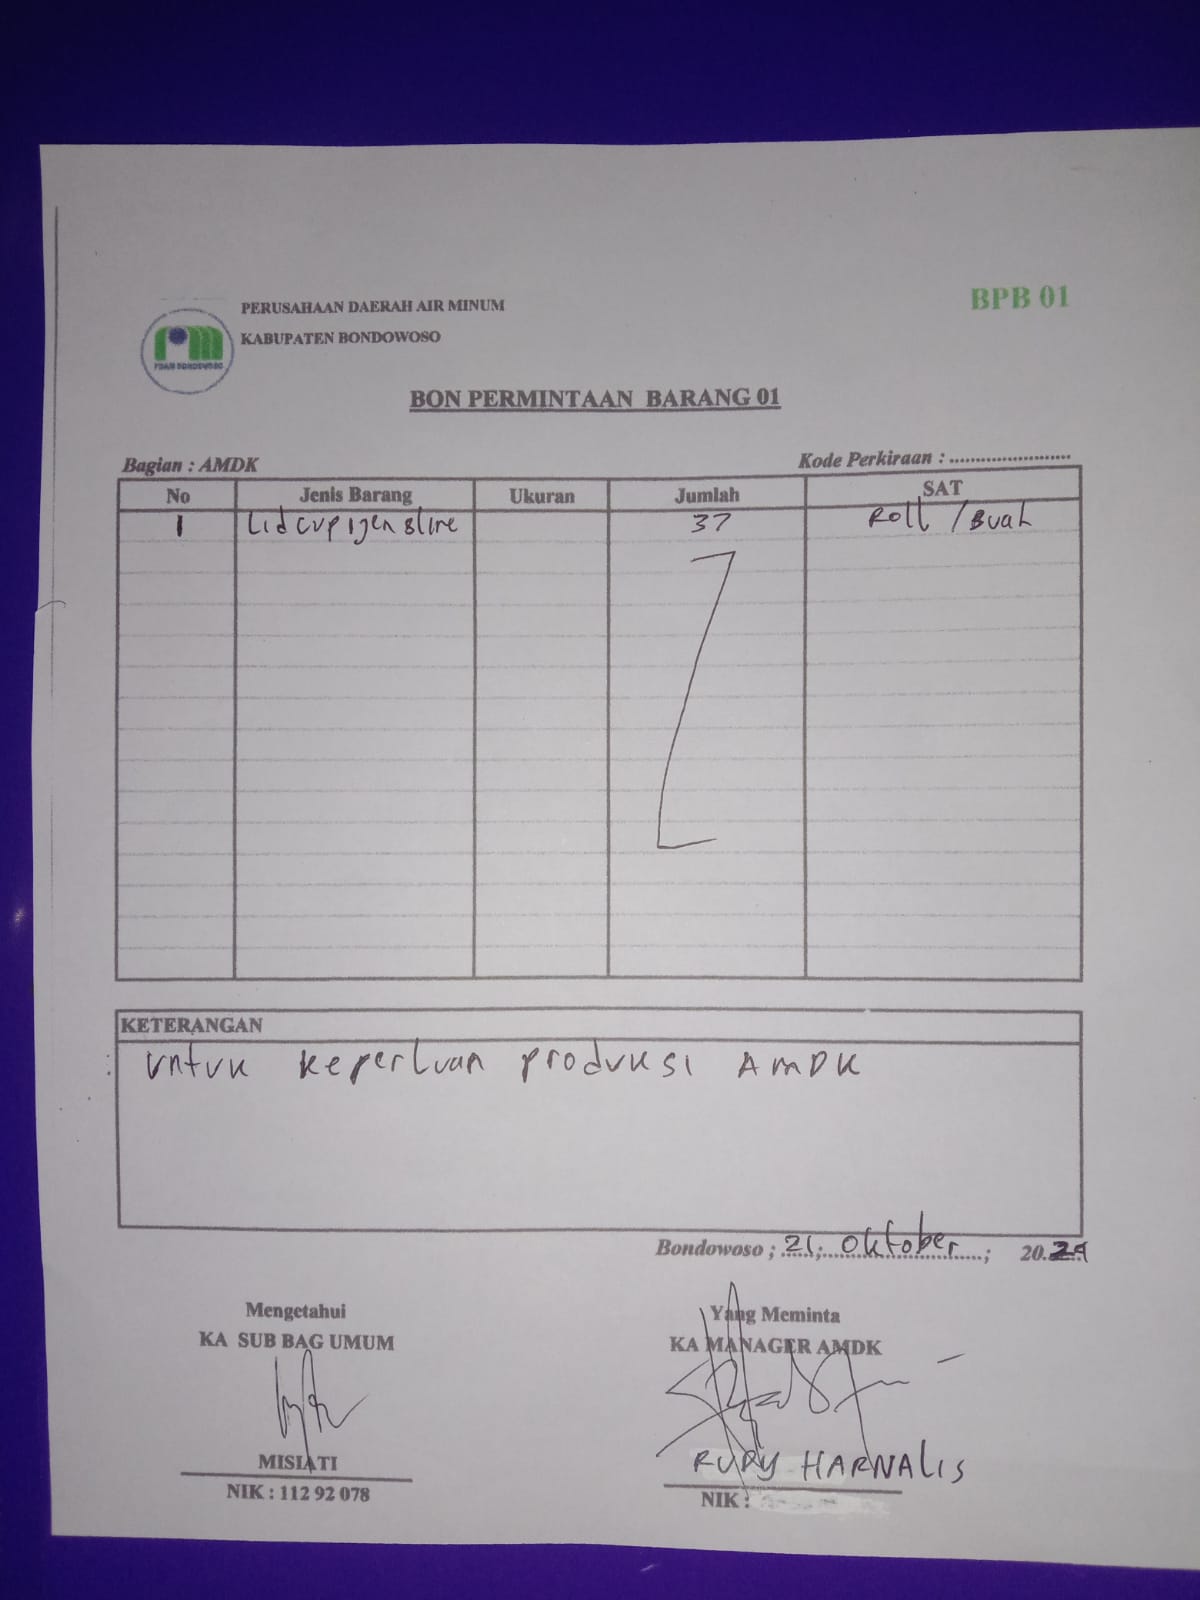 PERUSAHAAN DAERAH AIR MINUM
KABUPATEN BONDOWOSO
PDAM BONDOWOSO
BPB 01
BON PERMINTAAN BARANG 01
Bagian : AMDK
Kode Perkiraan : ........................
No Jenis Barang Ukuran Jumlah SAT
1 Lid cup ijen 37 Roll / Buah
KETERANGAN
: Untuk keperluan produksi AMDK
Bondowoso ; 21, Oktober ; 2024
Mengetahui
KA SUB BAG UMUM
MISIATI
NIK : 112 92 078
Yang Meminta
KA MANAGER AMDK
RUDY HARNALIS
NIK :